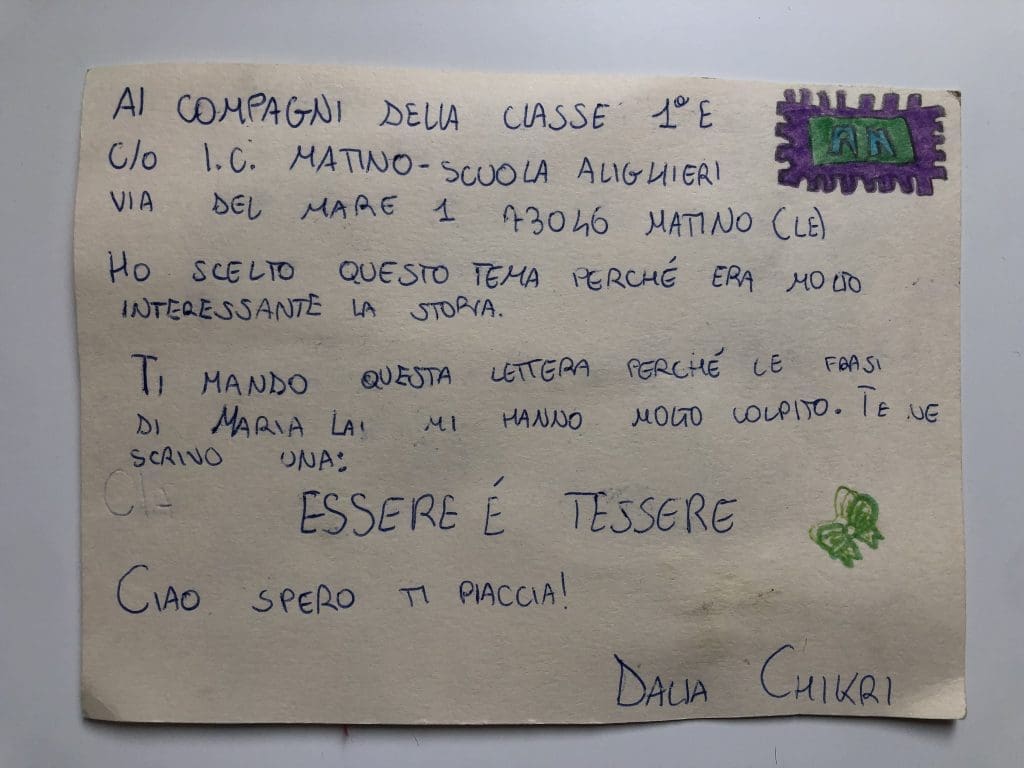 AI COMPAGNI DELLA CLASSE 1° E
C/O I.C. MATINO-SCUOLA ALIGHIERI
VIA DEL MARE 1 73046 MATINO (LE)
HO SCELTO QUESTO TEMA PERCHÉ ERA MOLTO
INTERESSANTE LA STORIA.
TI MANDO QUESTA LETTERA PERCHÉ LE FRASI
DI MARIA LAI MI HANNO MOLTO COLPITO. TE NE
SCRIVO UNA:
ESSERE É TESSERE
CIAO SPERO TI PIACCIA!
DALIA CHIKRI